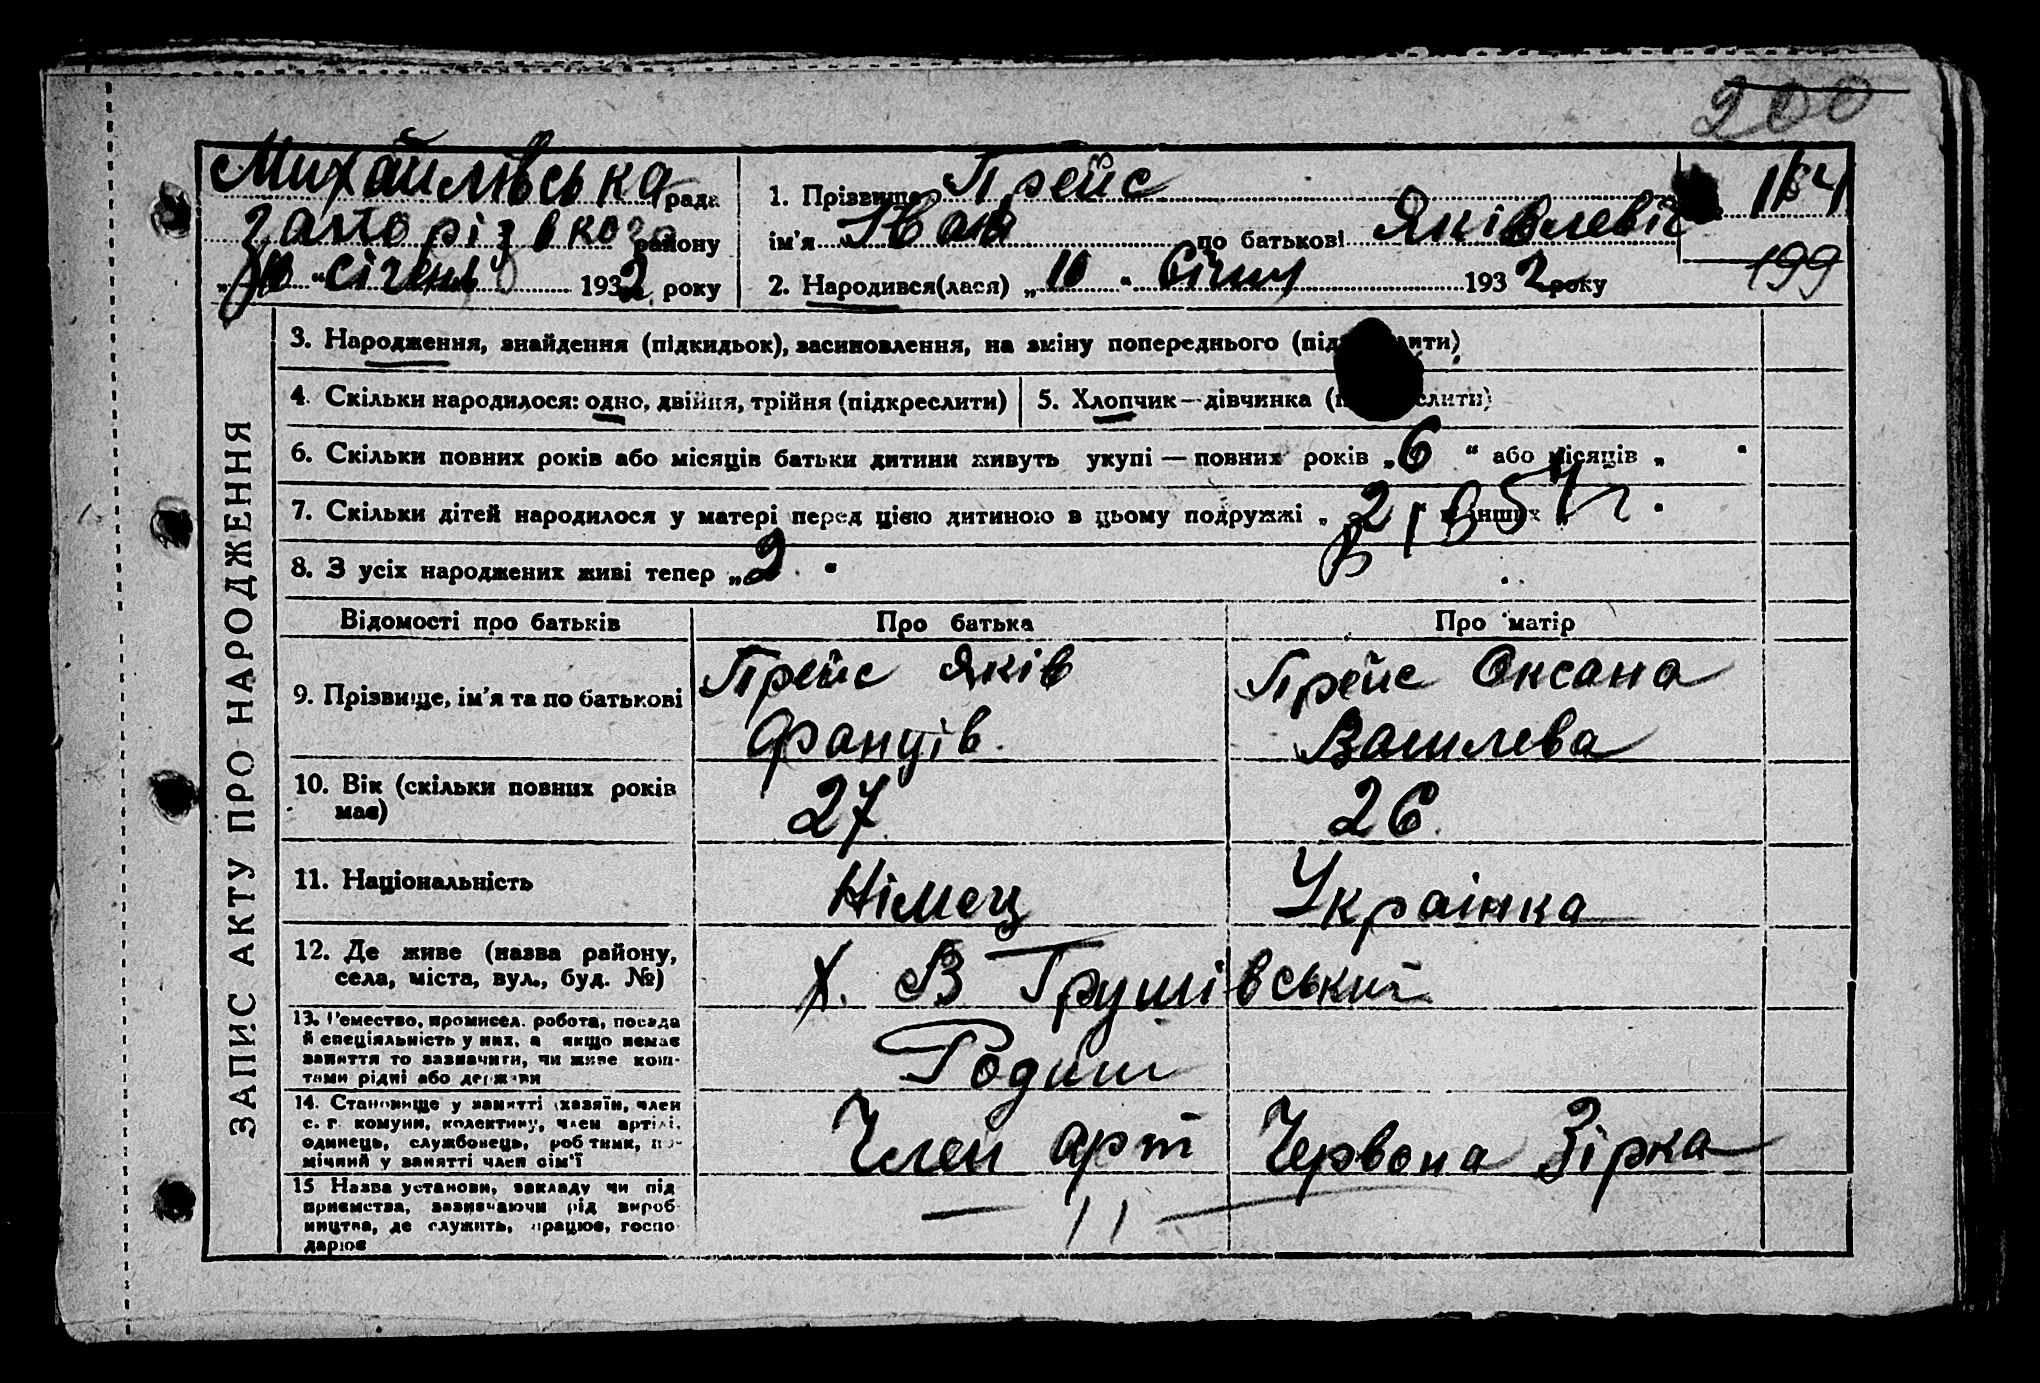 200
Михайлівська рада
Запорізького району
"10" січень 1932 року
1. Прізвище Прейс
ім'я Іван по батькові Яківлевіч
2. Народився(лася) „10" Січня 1932 року
199
ЗАПИС АКТУ ПРО НАРОДЖЕННЯ
3. Народження, знайдення (підкидьок), засиновлення, на зміну попереднього
4. Скільки народилося: одно, двійня, трійня (підкреслити)
5. Хлопчик—дівчинка
6. Скільки повних років або місяців батьки дитини живуть укупі — повних років „6" або місяців „ "
7. Скільки дітей народилося у матері перед цією дитиною в цьому подружжі „2" інших
8. З усіх народжених живі тепер „2"
Відомості про батьків Про батька Про матір
9. Прізвище, ім'я та по батькові
Прейс Яків
Франців
Прейс Оксана
Василева
10. Вік (скільки повних років
має)
27 26
11. Національність Німец Украінка
12. Де живе (назва району,
села, міста, вул., буд. №)
Х. В Грушівський
13. Ремество, промисел. робота, посада
й спеціяльність у них, а якщо немає
заняття то зазначити, чи живе кош-
тами рідні або держави
14. Становище у занятті (хазяїн, член
с. г. комуни, колективу, член артілі,
одинець, службовець, робітник, по-
мічний у занятті член сім'ї
Член арт Червона Зірка
15 Назва установи, закладу чи під
приємства, зазначаючи рід вироб
ництва, де служить, працює, госпо
дарює
— 11 —